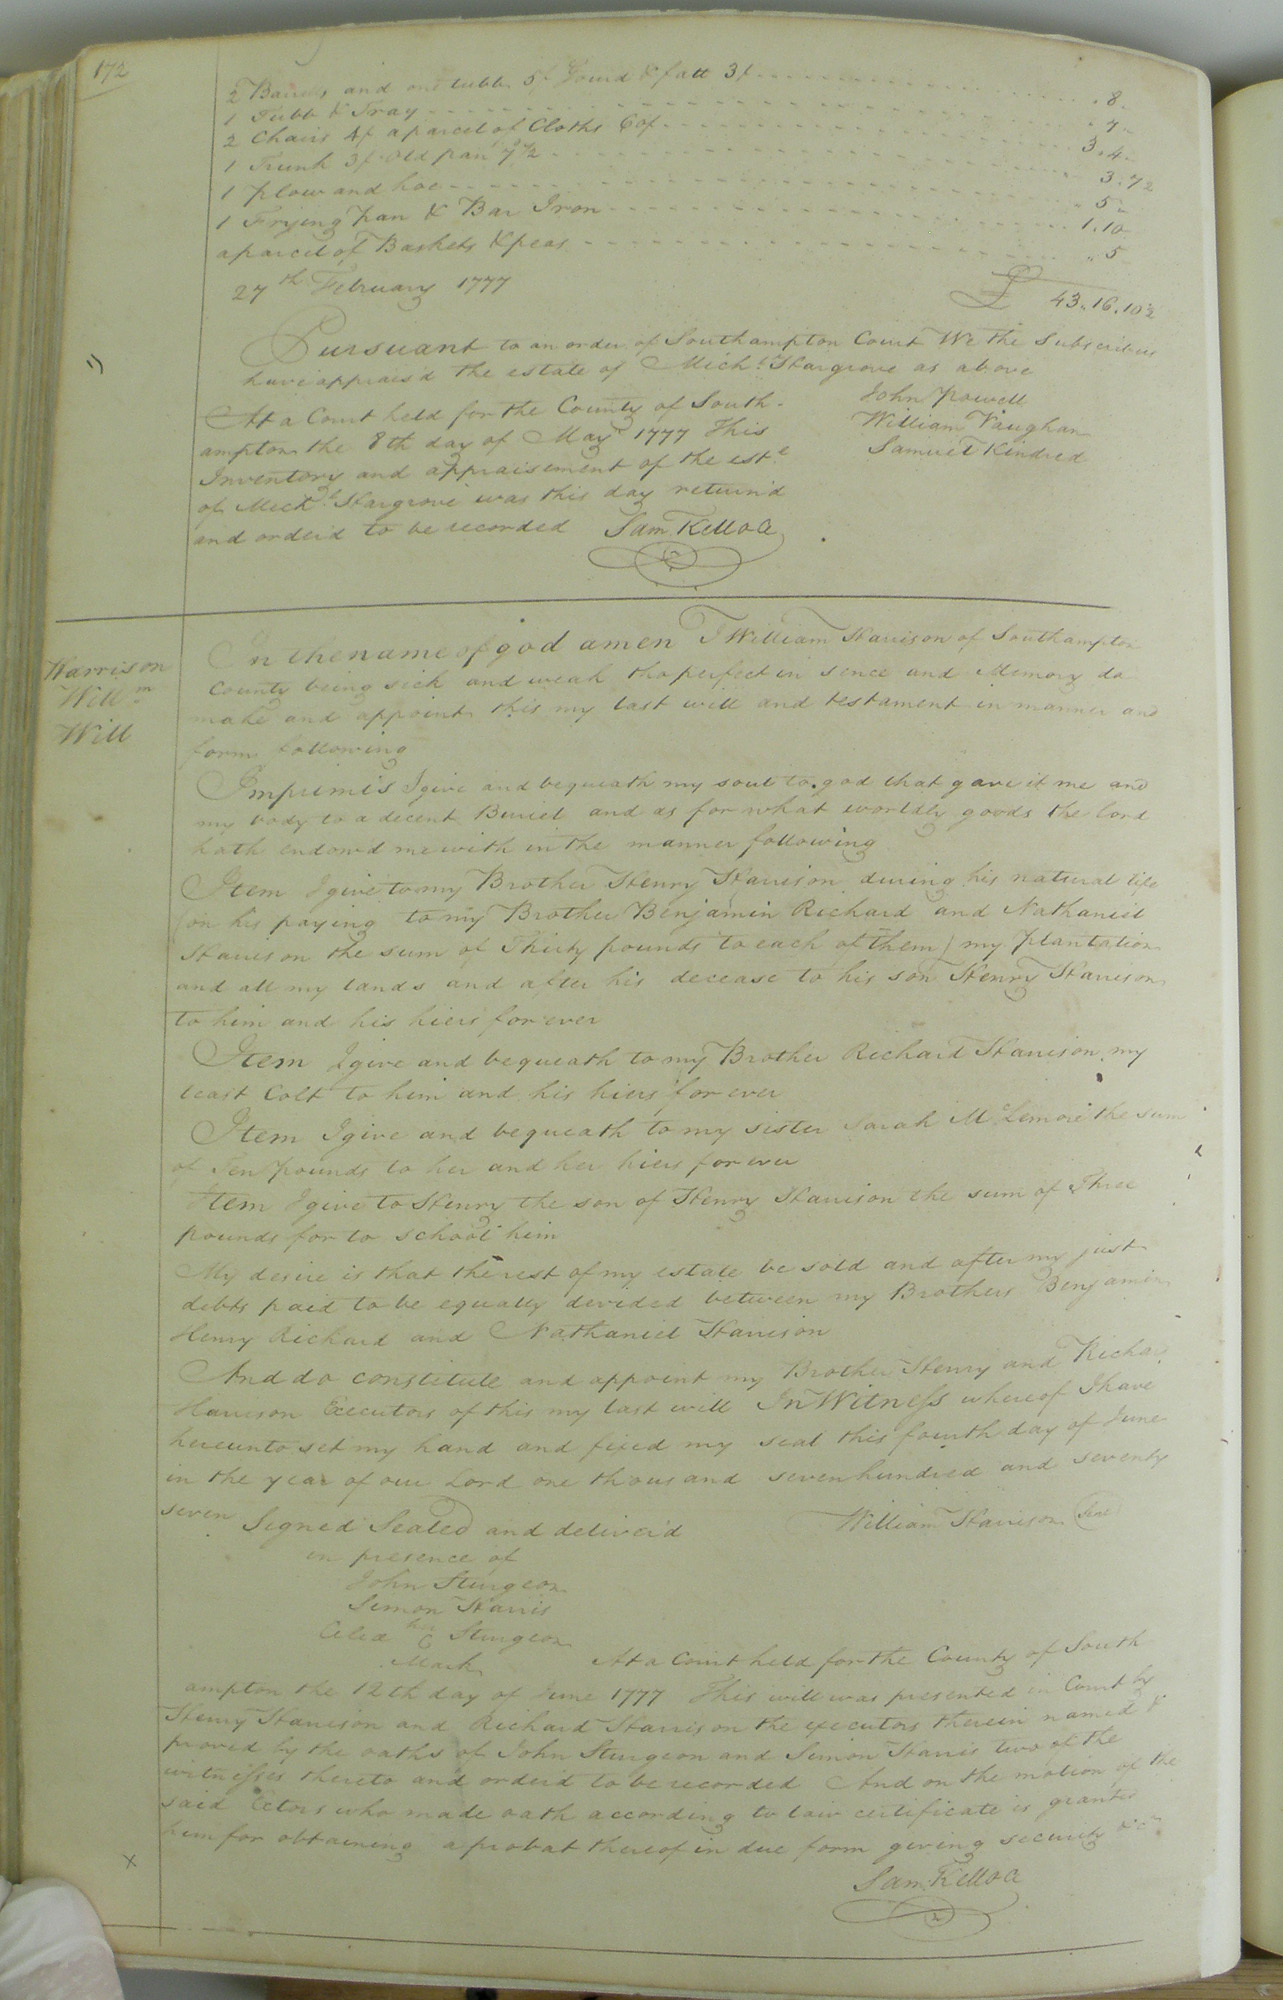 172
2 Barrels and one tubb 5/ Gourd & fatt 3/ .8.
1 Tubb & Tray .7.
2 Chairs 4/ a parcel of Cloths 60/ 3.4.
1 Trunk 3/ Old pan 7½ 3.7½
1 plow and hoe .5.
1 Frying pan & Bar Iron 1.10
a parcel of Baskets & peas .5
27th February 1777 £ 43.16.10½
Pursuant to an order of Southampton Court We the Subscribers
have apprais'd the estate of Michl. Hargrove as above
John Powell
William Vaughan
Samuel Kindred
At a Court held for the County of South-
ampton the 8th day of May 1777 This
Inventory and appraisement of the este
of Michl. Hargrove was this day return'd
and order'd to be recorded Sam Kello Cl
Harrison
Willm
Will
In the name of god amen I William Harrison of Southampton
County being sick and weak tho perfect in sence and Memory do
make and appoint this my last will and testament in manner and
form following
Imprimis I give and bequeath my soul to god that gave it me and
my body to a decent Buriel and as for what worldly goods the lord
hath endowd me with in the manner following
Item I give to my Brother Henry Harrison during his natural life
(on his paying to my Brother Benjamin Richard and Nathaniel
Harrison the sum of Thirty pounds to each of them) my plantation
and all my lands and after his decease to his son Henry Harrison
to him and his hiers for ever
Item I give and bequeath to my Brother Richard Harrison my
least Colt to him and his hiers for ever
Item I give and bequeath to my sister Sarah McLemore the sum
of Ten pounds to her and her hiers for ever
Item I give to Henry the son of Henry Harrison the sum of Three
pounds for to school him
My desire is that the rest of my estate be sold and after my just
debts paid to be equally devided between my Brothers Benjamin
Henry Richard and Nathaniel Harrison
And do constitute and appoint my Brother Henry and Richard
Harrison Executors of this my last will In Witness whereof I have
hereunto set my hand and fixed my seal this fourth day of June
in the year of our Lord one thousand seven hundred and seventy
seven
Signed Sealed and deliver'd William Harrison Seal
in presence of
John Sturgeon
Simon Harris
her
Celia C Sturgeon
Mark
At a Court held for the County of South
ampton the 12th day of June 1777 This will was presented in Court by
Henry Harrison and Richard Harrison the executors therein named &
proved by the oaths of John Sturgeon and Simon Harris two of the
witnesses thereto and order'd to be recorded And on the motion of the
said Ectors who made oath according to law certificate is granted
him for obtaining a probat thereof in due form giving security &c
Sam Kello Cl
x